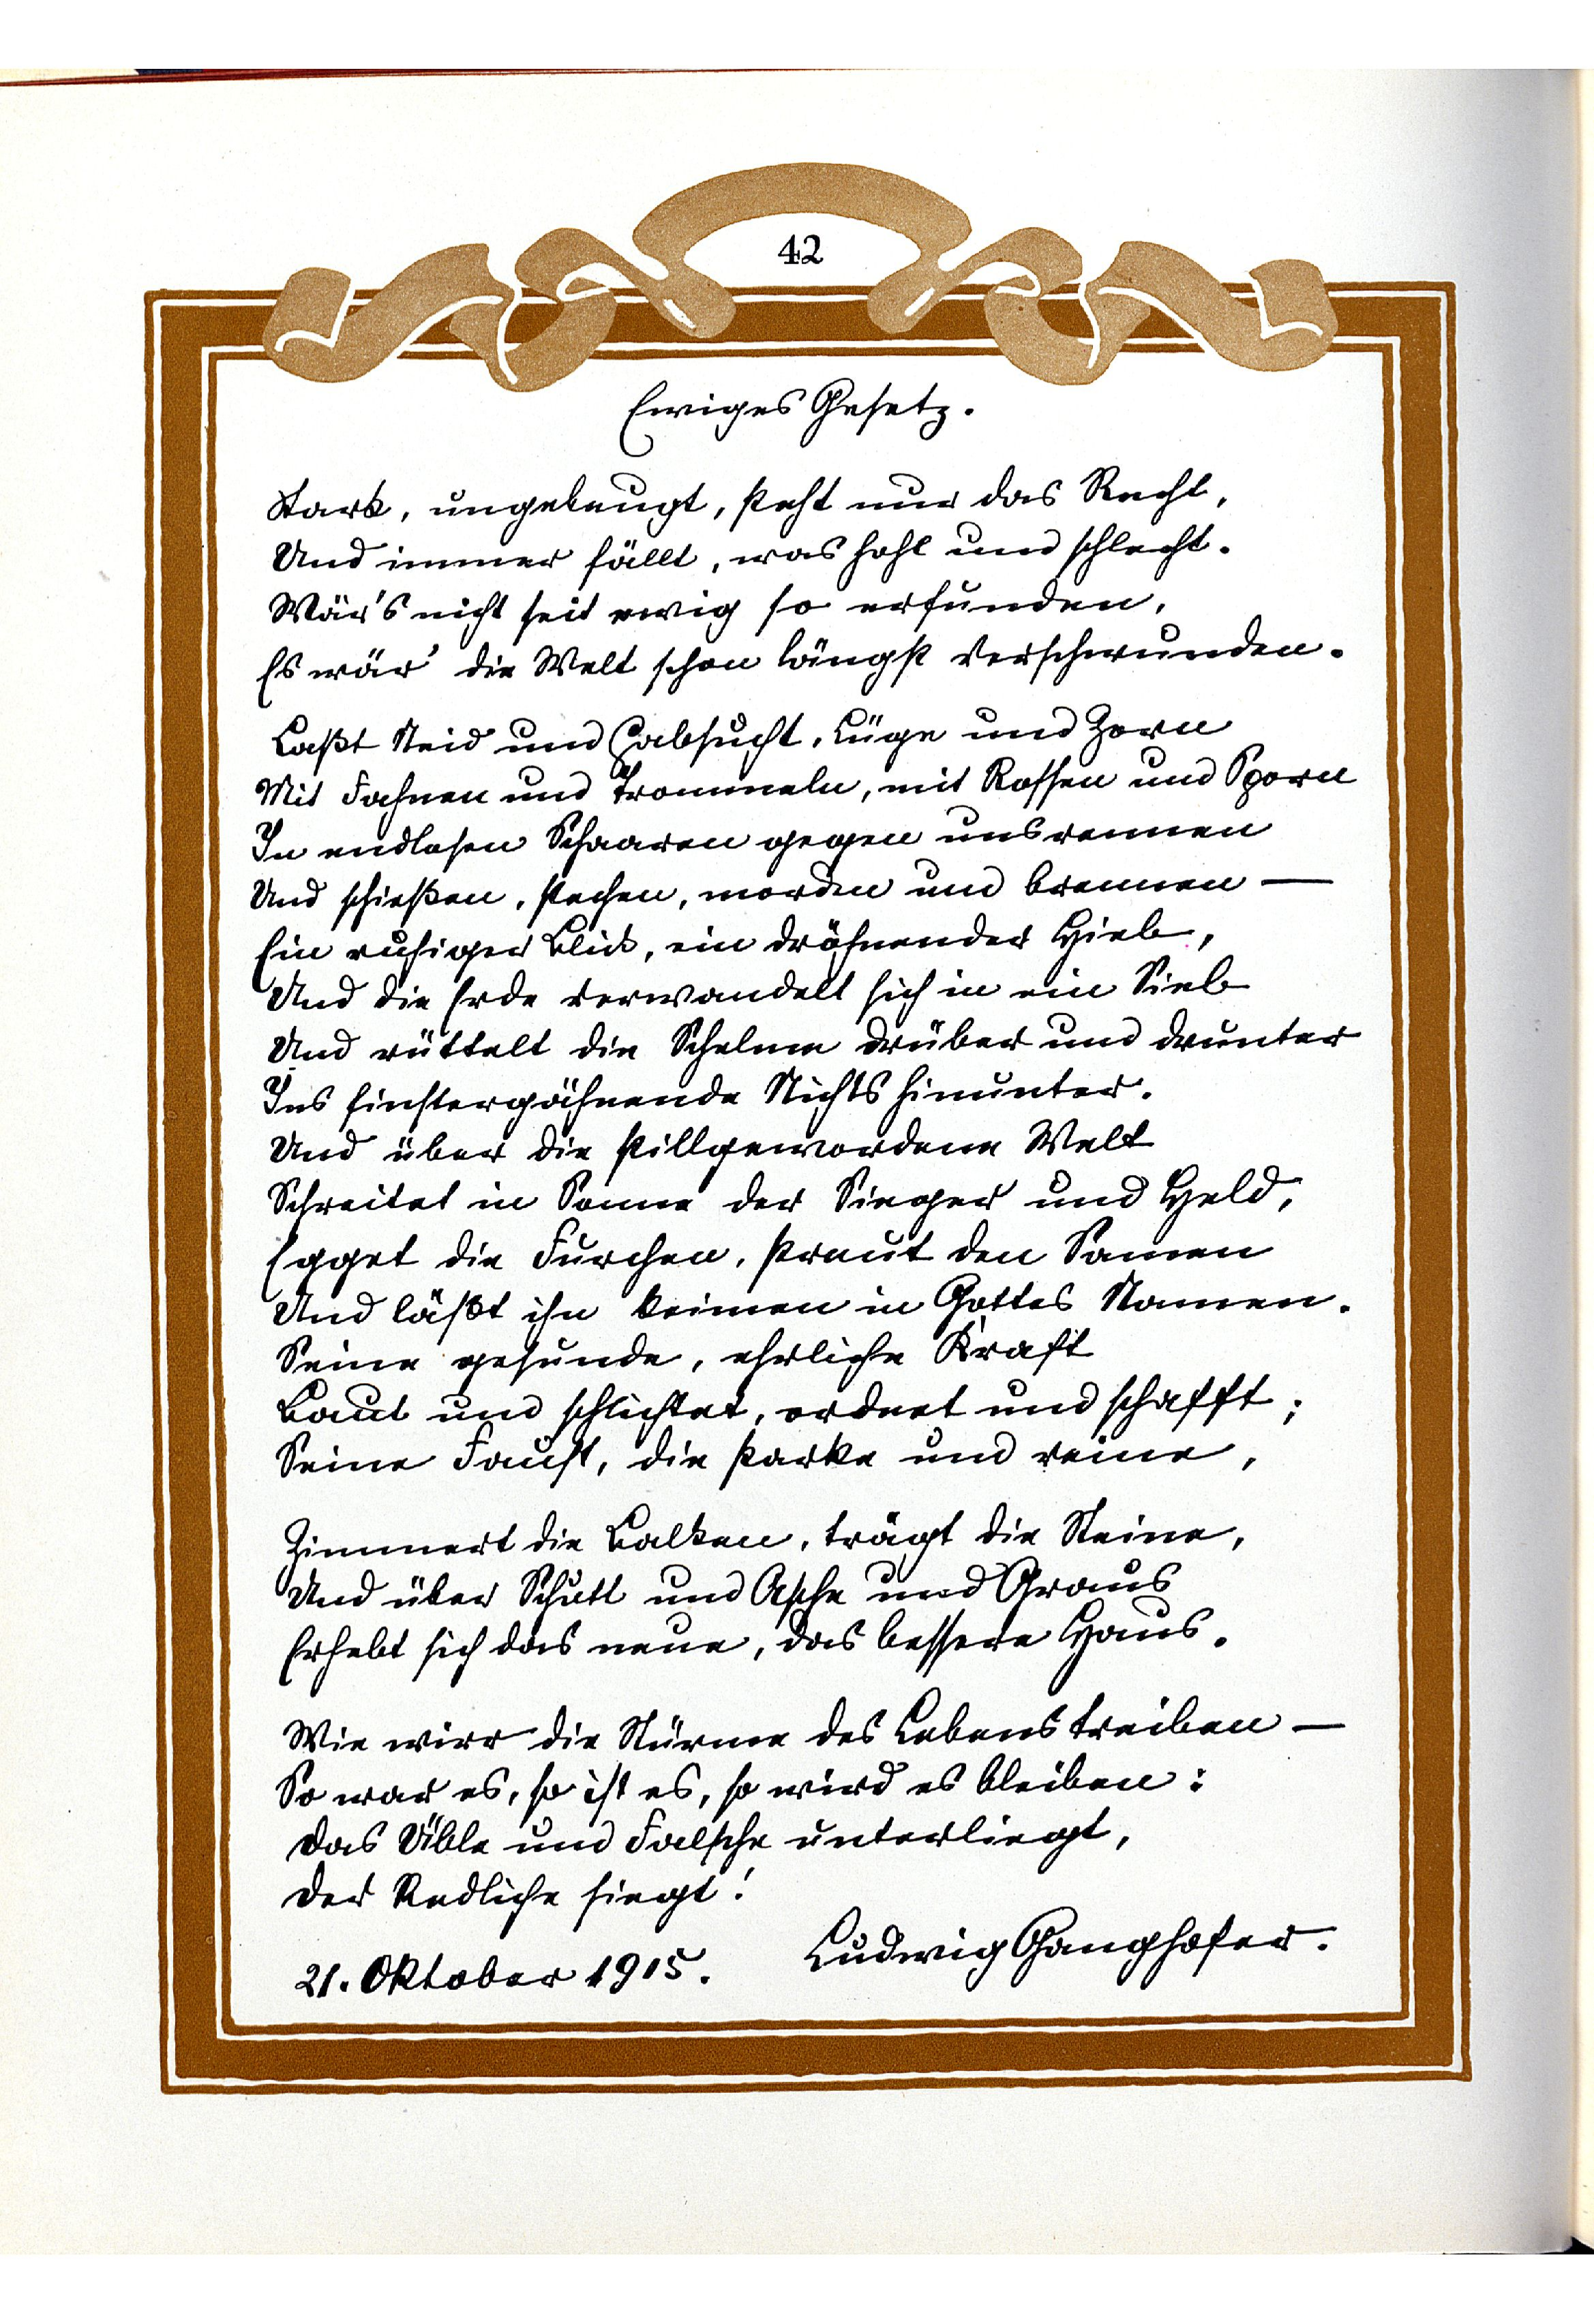 42
Ewiges Gesetz.
Stark, ungebeugt, steht nur das Recht,
Und immer fällt, was hohl und schlecht.
Wär's nicht seit ewig so erfunden,
Es wär' die Welt schon längst verschwunden.
Laßt Neid und Habsucht, Lüge und Zorn
Mit Fahnen und Trommeln, mit Rossen und Sporn
In endlosen Schaaren gegen uns rennen
Und schießen, stechen, morden und brennen —
Ein ruhiger Blick, ein dröhnender Hieb,
Und die Erde verwandelt sich in ein Sieb
Und rüttelt die Schelme drüber und drunter
Ins finstergähnende Nichts hinunter.
Und über die stillgewordene Welt
Schreitet in Sonne der Sieger und Held,
Egget die Furchen, streut den Samen
Und läßt ihn keimen in Gottes Namen.
Seine gesunde, ehrliche Kraft
Baut und schlichtet, ordnet und schafft;
Seine Faust, die starke und reine,
Zimmert die Balken, trägt die Steine,
Und über Schutt und Asche und Graus
Erhebt sich das neue, das bessere Haus.
Wie wirr die Stürme des Lebens treiben —
So war es, so ist es, so wird es bleiben:
Das Üble und Falsche unterliegt,
Der Redliche siegt!
21. Oktober 1915. Ludwig Ganghofer.